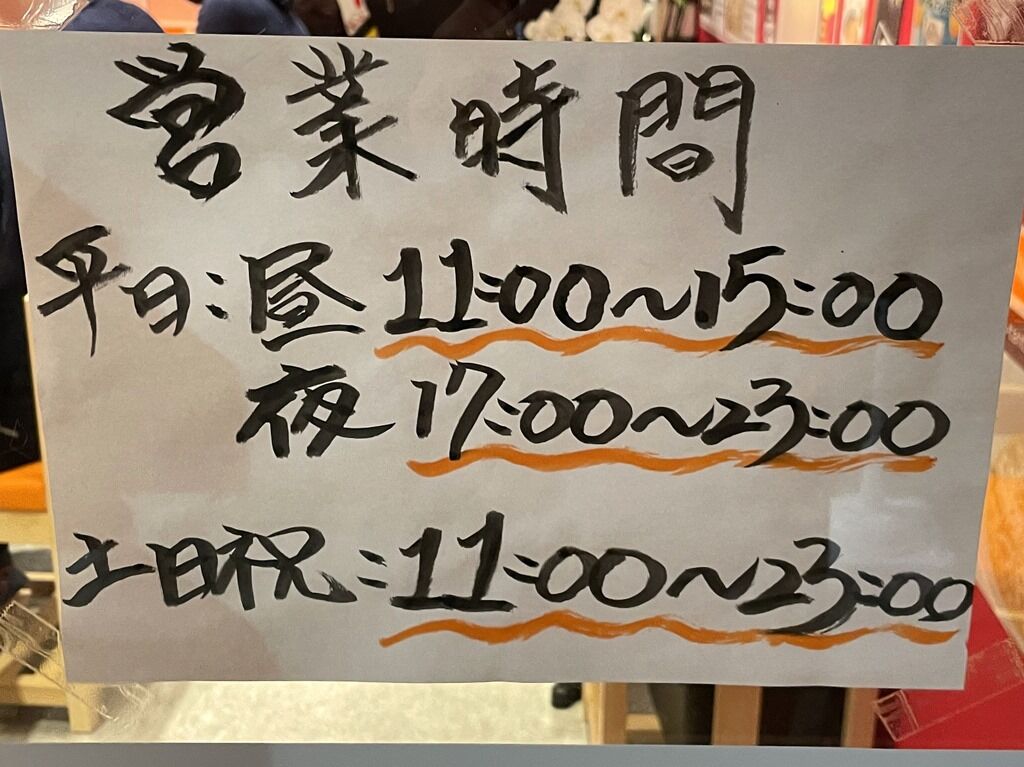 営業時間
平日:昼 11:00~15:00
夜 17:00~23:00
土日祝:11:00~23:00